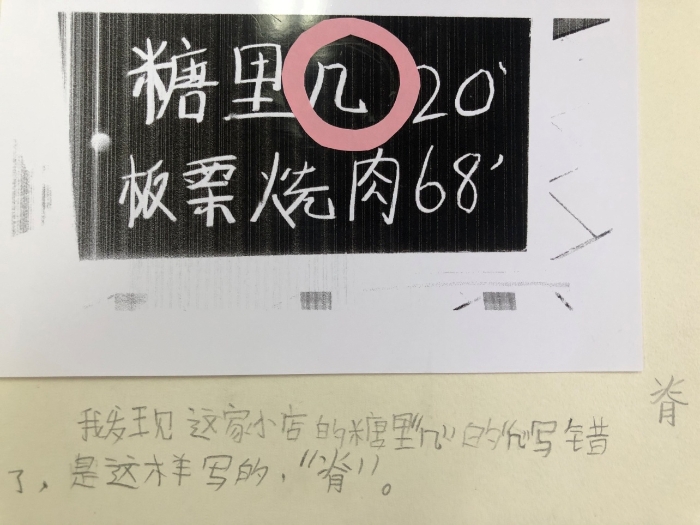 糖里几 20'
板栗烧肉 68'
脊
我发现这家小店的糖里"几"的"几"写错
了，是这样写的，"脊"。